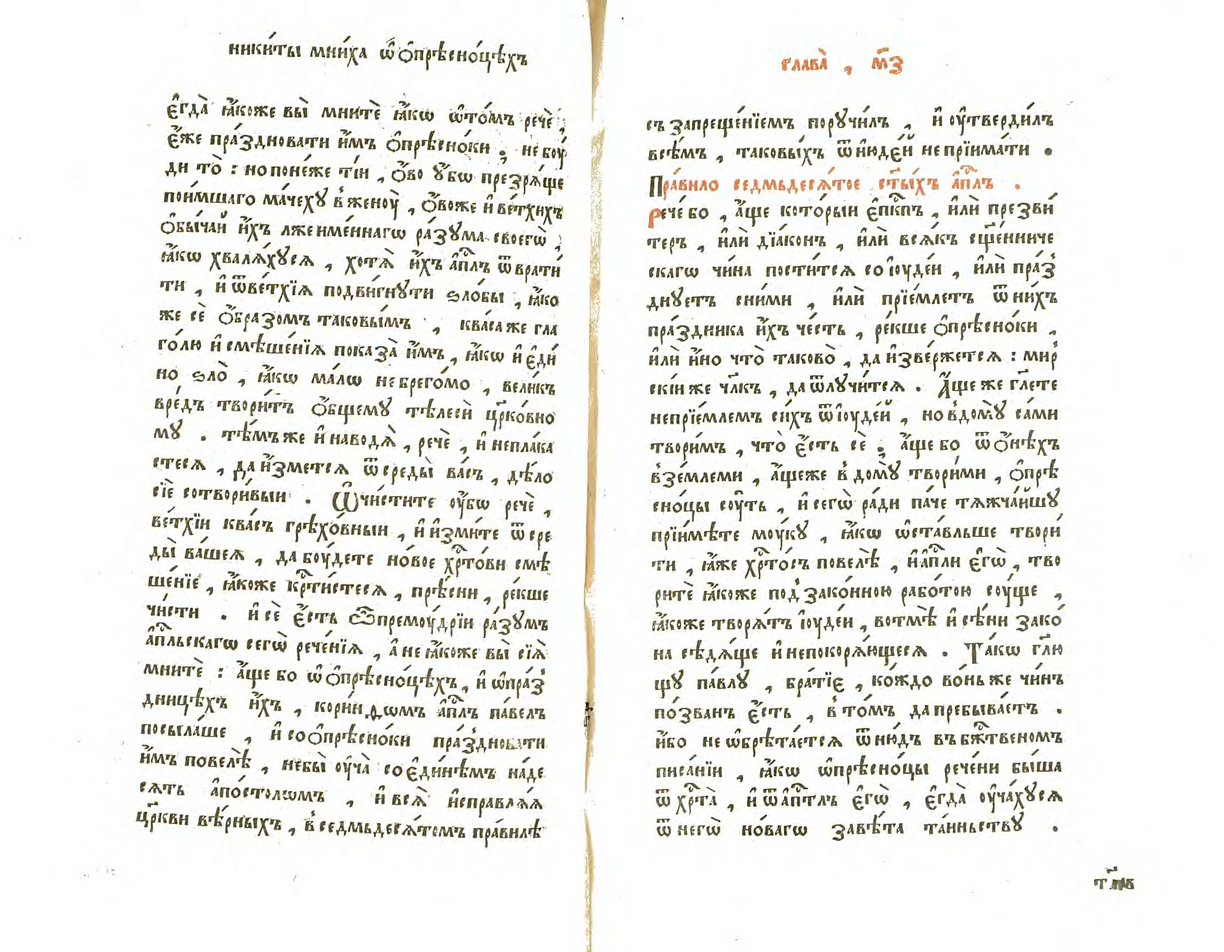 никѝты мни́ха ѡ҆ ѻ҆прѣсно́цѣхъ
є҆гда̀ ꙗ҆́коже вы̀ мнитѐ ꙗ҆́кѡ ѡ҆то́мъ речѐ,
є҆́же пра́здновати и҆̀мъ ѻ҆прѣсно́ки; не бꙋ́
ди то̀ : но поне́же ті́и , ѻ҆́во ᲂу҆́бѡ презрѧ́ще
пои́мшаго ма́чехꙋ в женоу̀ , ѻ҆́воже и҆ ве́тхихъ
ѻ҆бы́чаи и҆́хъ лжеиме́ннагѡ ра́зꙋма своегѡ̀ ,
ꙗ҆́кѡ хвалѧ́хꙋсѧ , хотѧ̀ и҆́хъ а҆п҃лъ ѿврати́
ти , и҆ ѿве́тхїѧ подви́гнꙋти ѕло́бы , ꙗ҆́ко
же сѐ ѻ҆́бразомъ таковы́мъ , ква́са же гла
го́лю и҆ смѣше́нїѧ показа̀ и҆̀мъ , ꙗ҆́кѡ и҆ є҆ди́
но ѕло̀ , ꙗ҆́кѡ ма́лѡ не брего́мо , вели́къ
вре́дъ твори́тъ ѻ҆́бщемꙋ тѣлесѝ цр҃ко́вно
мꙋ . тѣ́мъ же и҆ наводѧ̀ , речѐ , и҆ непла́ка
стесѧ , да и҆́зметсѧ ѿ среды̀ ва́съ , дѣ́ло
сїѐ сотвори́выи . Ѡ҆чи́стите оу҆́бѡ речѐ ,
ве́тхїи ква́съ грѣхо́вныи , и҆ и҆зми́те ѿ сре
ды̀ ва́шеѧ , да боу́дете но́вое хрⷭ҇то́ви смѣ
ше́нїе , ꙗ҆́коже крⷭ҇ти́стесѧ , прѣ́сни , ре́кше
чи́сти . и҆ сѐ є҆́сть ѿ премоу́дрїи ра́зꙋмъ
а҆п҃льскагѡ сегѡ̀ рече́нїѧ , а҆ не ꙗ҆́коже вы̀ сїѧ̀
мнитѐ : а҆́ще бо ѡ҆ ѻ҆прѣсно́цѣхъ , и҆ ѡ҆ пра́з
дницѣхъ и҆́хъ , кори́нѳѡмъ а҆п҃лъ па́велъ
посыла́ше , и҆ со ѻ҆прѣсно́ки пра́здновати
и҆̀мъ повелѣ̀ , не бы̀ оу҆ча̀ соє҆ди́нѣмъ на́де
сѧть а҆по́столѡмъ , и҆ всѧ̀ и҆справлѧ́ѧ
цр҃кви вѣ́рныхъ , в седмьдесѧ́томъ пра́вилѣ
глава̀ , м҃з
съ запреще́нїемъ порꙋчи́лъ , и҆ оу҆тверди́лъ
всѣ́мъ , таковы́хъ ѿ їюде́й не прїима́ти .
Пра́вило седмьдесѧ́тое ст҃ы́хъ а҆п҃лъ .
Рече́ бо , а҆́ще кото́рыи є҆пⷭ҇кпъ , и҆лѝ презви́
теръ , и҆лѝ дїа́конъ , и҆лѝ всѧ́къ сщ҃е́нниче
скагѡ чи́на пости́тсѧ со і҆оуде́и , и҆лѝ пра́з
днꙋетъ сни́ми , и҆лѝ прїе́млетъ ѿ ни́хъ
пра́здника и҆́хъ че́сть , ре́кше ѻ҆прѣсно́ки ,
и҆лѝ и҆́но что̀ таково̀ , да и҆зве́ржетсѧ : мир
скі́и же чл҃къ , да ѿлꙋчи́тсѧ . А҆́ще же гл҃ете
непрїе́млемъ си́хъ ѿ і҆оуде́й , но в домꙋ̀ са́ми
твори́мъ , что̀ є҆́сть сѐ ; а҆́ще бо ѿ ѻ҆́нѣхъ
взе́млеми , а҆́щеже в домꙋ̀ твори́ми , ѻ҆прѣ
сно́цы соу́ть , и҆ сегѡ̀ ра́ди па́че тѧжча́йшꙋ
прїи́мѣте моу́кꙋ , ꙗ҆́кѡ ѡ҆ста́вльше твори́
ти , ꙗ҆̀же хрⷭ҇то́съ повелѣ̀ , и҆ а҆п҃ли є҆гѡ̀ , тво
ритѐ ꙗ҆́коже под зако́нною рабо́тою соу́ще ,
ꙗ҆́коже творѧ́тъ і҆оуде́и , во тмѣ̀ и҆ сѣ́ни зако́
на сѣдѧ́ще и҆ непокорѧ́ющесѧ . Та́кѡ гл҃ю
щꙋ па́влꙋ , бра́тїє , кождо во́ньже чи́нъ
по́званъ є҆́сть , в то́мъ да пребыва́етъ .
и҆́бо не ѡ҆брѣта́етсѧ ѿню́дъ въ бжⷭ҇твеномъ
писа́нїи , ꙗ҆́кѡ ѡ҆прѣсно́цы рече́ни бы́ша
ѿ хрⷭ҇та̀ , и҆ ѿ а҆пⷭ҇тлъ є҆гѡ̀ , є҆гда̀ оу҆ча́хꙋсѧ
ѿ негѡ̀ но́вагѡ заве́та та́иньствꙋ .